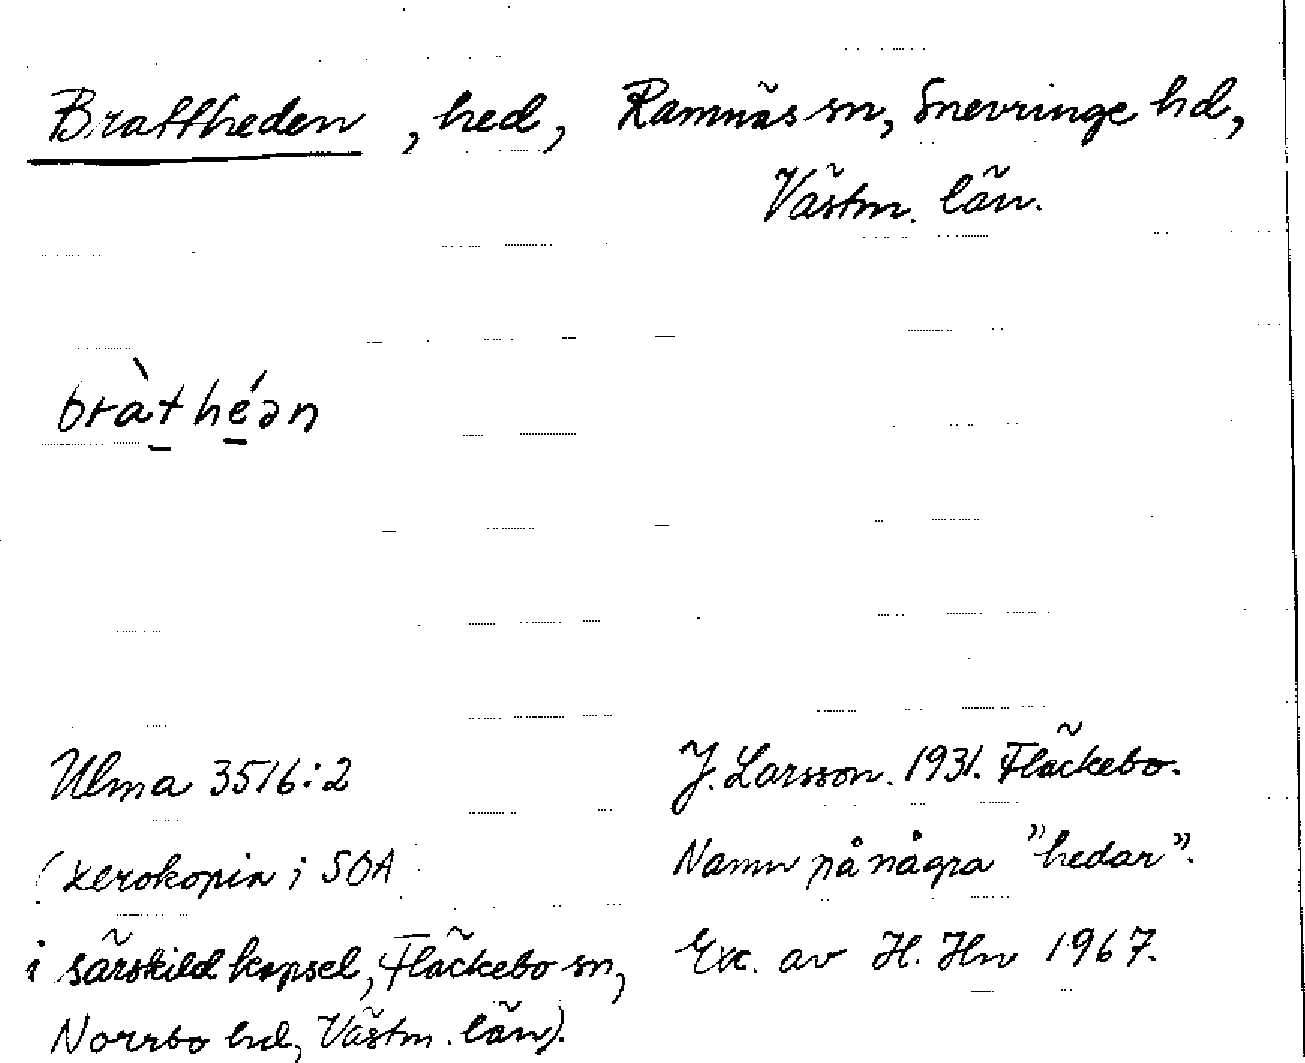 Brattheden, hed, Ramnäs sn, Snevringe hd,
Västm. län.
bràt héən
Ulma 3516:2
(xerokopia i SOA
i särskild kapsel, Fläckebo sn,
Norrbo hd, Västm. län).
J. Larsson. 1931. Fläckebo.
Namn på några "hedar".
Exc. av H. Hn 1967.